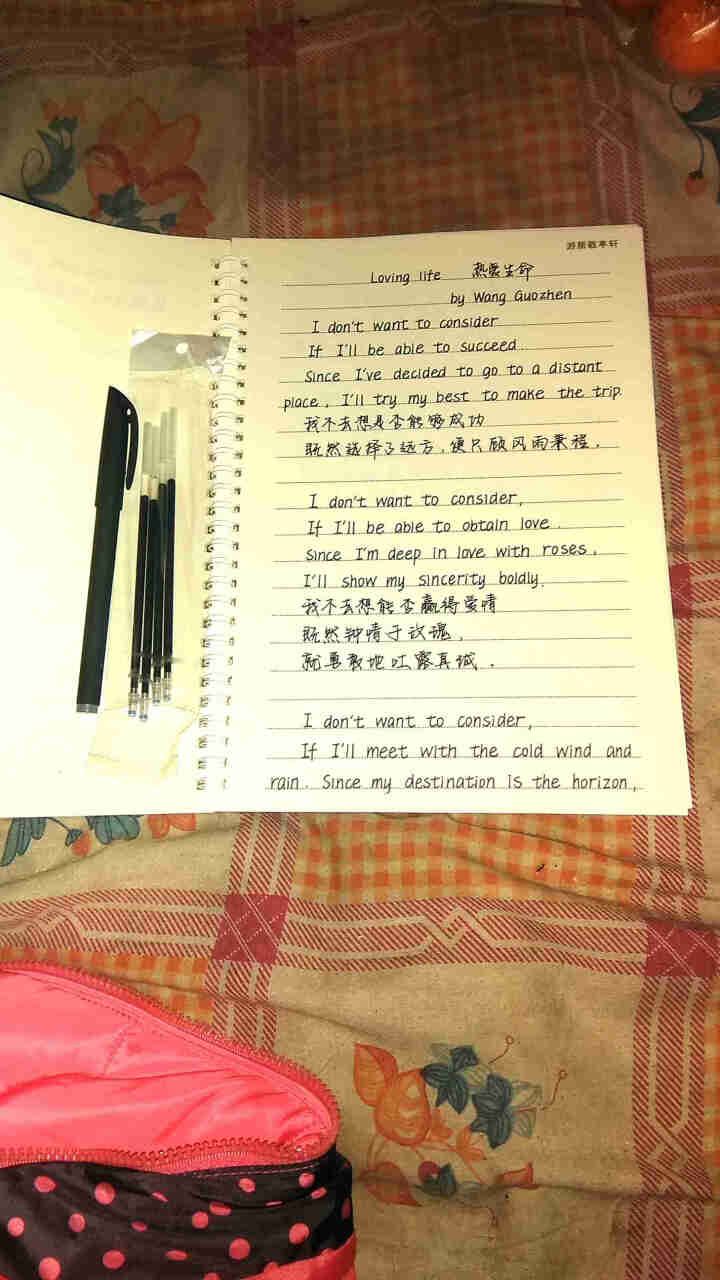 游丽敬亭轩
Loving life 热爱生命
by Wang Guozhen
I don't want to consider
If I'll be able to succeed
Since I've decided to go to a distant
place, I'll try my best to make the trip.
我不去想是否能够成功
既然选择了远方,便只顾风雨兼程.
I don't want to consider,
If I'll be able to obtain love.
Since I'm deep in love with roses,
I'll show my sincerity boldly.
我不去想能否赢得爱情
既然钟情于玫瑰,
就勇敢地吐露真诚.
I don't want to consider,
If I'll meet with the cold wind and
rain. Since my destination is the horizon,